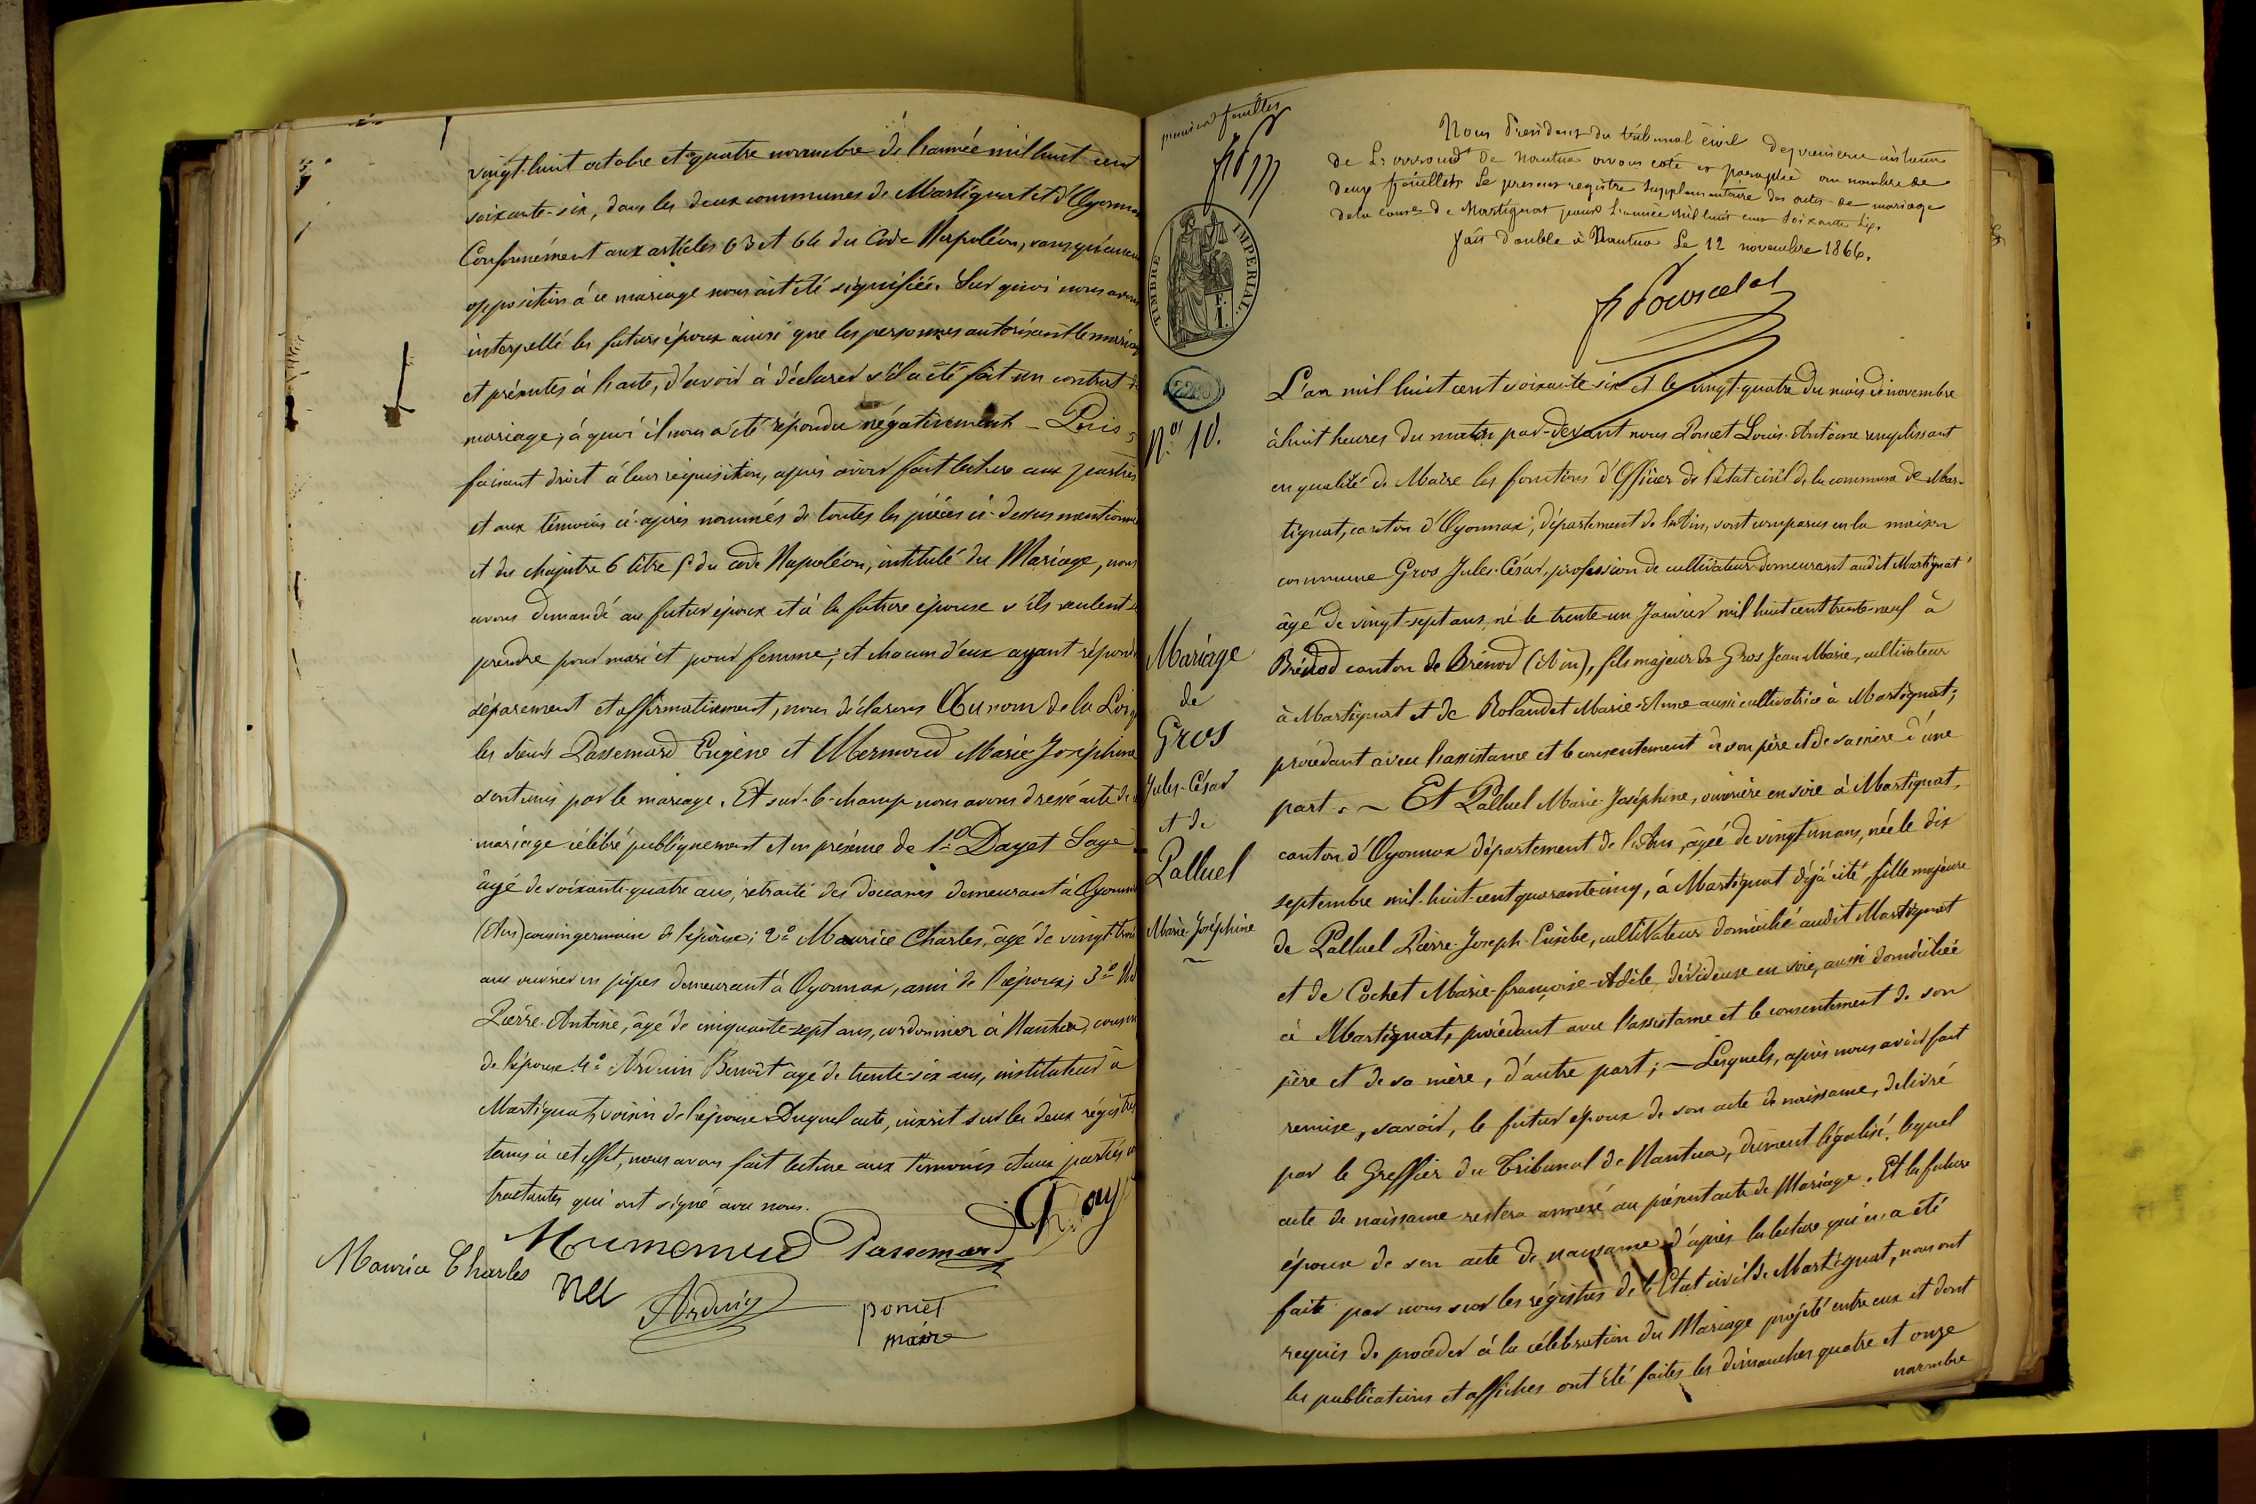 vingt-huit octobre et quatre novembre de l'année mil huit cent
soixante-six, dans les deux communes de Martignat et d'Oyonnax
Conformément aux articles 63 et 64 du Code Napoléon, sans qu'aucune
opposition à ce mariage nous ait été signifiée. Sur quoi nous avons
interpellé les futurs époux ainsi que les personnes autorisant le mariage
et présentes à l'acte, d'avoir à déclarer s'il a été fait un contrat de
mariage, à quoi il nous a été répondu négativement – Puis
faisant droit à leur réquisition, après avoir fait lecture aux parties
et aux témoins ci-après nommés de toutes les pièces ci-dessus mentionnées
et du chapitre 6 titre 5 du code Napoléon, intitulé du Mariage, nous
avons demandé au futur époux et à la future épouse s'ils veulent se
prendre pour mari et pour femme; et chacun d'eux ayant répondu
séparement et affirmativement, nous déclarons Au nom de la Loi
les sieurs Passemard Eugène et Mermoud Marie Joséphine
sont unis par le mariage. Et sur-le-champ nous avons dressé acte de
mariage célébré publiquement et en présence de 1º Dayet
âgé de soixante-quatre ans, retraité des douanes demeurant à Oyonnax
(Ain) cousin germain de l'épouse; 2º Maurice Charles, âgé de vingt-trois
ans ouvrier en pipes demeurant à Oyonnax, ami de l'époux; 3º
Pierre-Antoine, âgé de cinquante-sept ans, cordonnier à Nantua, cousin
de l'épouse 4º Arduin Benoît agé de trente-six ans, instituteur à
Martignat, voisin de l'épouse Duquel acte, inscrit sur les deux régistres
tenus à cet effet, nous avons fait lecture aux témoins et aux parties con
tractantes qui ont signé avec nous.
Passemard
Maurice Charles
Arduin
poncet
maire
premier feuillet
Nous Président du tribunal civil de premiere instance
de L'arrond.t de Nantua avons coté et paraphé au nombre de
deux feuillets Le present registre Supplementaire des actes de mariage
de la comne de Martignat pour L'année mil huit cent soixante Six,
fait double à Nantua Le 12 novembre 1866.
TIMBRE IMPERIAL.
N.º 10.
Mariage
de
Gros
Jules-César
et de
Palluel
Marie Joséphine
L'an mil huit cent soixante-six et le vingt-quatre du mois de novembre
à huit heures du matin par-devant nous Poncet Louis-Antoine remplissant
en qualité de Maire les fonctions d'Officier de l'état civil de la commune de Mar-
tignat, canton d'Oyonnax, département de l'Ain, sont comparus en la maison
commune Gros Jules-César, profession de cultivateur demeurant audit Martignat
âgé de vingt-sept ans, né le trente-un Janvier mil huit cent trente-neuf à
Brénod canton de Brénod (Ain), fils majeur de Gros Jean Marie, cultivateur
à Martignat et de Rolandet Marie-Anne aussi cultivatrice à Martignat;
procédant avec l'assistance et le consentement de son père et de sa mère d'une
part. ~ Et Palluel Marie-Joséphine, ouvrière en soie à Martignat,
canton d'Oyonnax département de l'Ain, âgée de vingt un ans, née le dix
septembre mil-huit-cent quarante cinq, à Martignat déjà cité, fille majeure
de Palluel Pierre-Joseph-Eusèbe, cultivateur domicilié audit Martignat
et de Cochet Marie-françoise-Adèle, dévideuse en soie, aussi domiciliée
à Martignat, procédant avec l'assistance et le consentement de son
père et de sa mère, d'autre part; ~ Lesquels, après nous avoir fait
remise, savoir, le futur époux de son acte de naissance, délivré
par le Greffier du Tribunal de Nantua, dûment légalisé, lequel
acte de naissance restera annexé au présent acte de Mariage. Et la future
épouse de son acte de naissance d'après la lecture qui en a été
faite par nous sur les régistres de l'Etat civil de Martignat, nous ont
requis de procéder à la célébration du Mariage projeté entre eux et dont
les publications et affiches ont été faites les dimanches quatre et onze
novembre